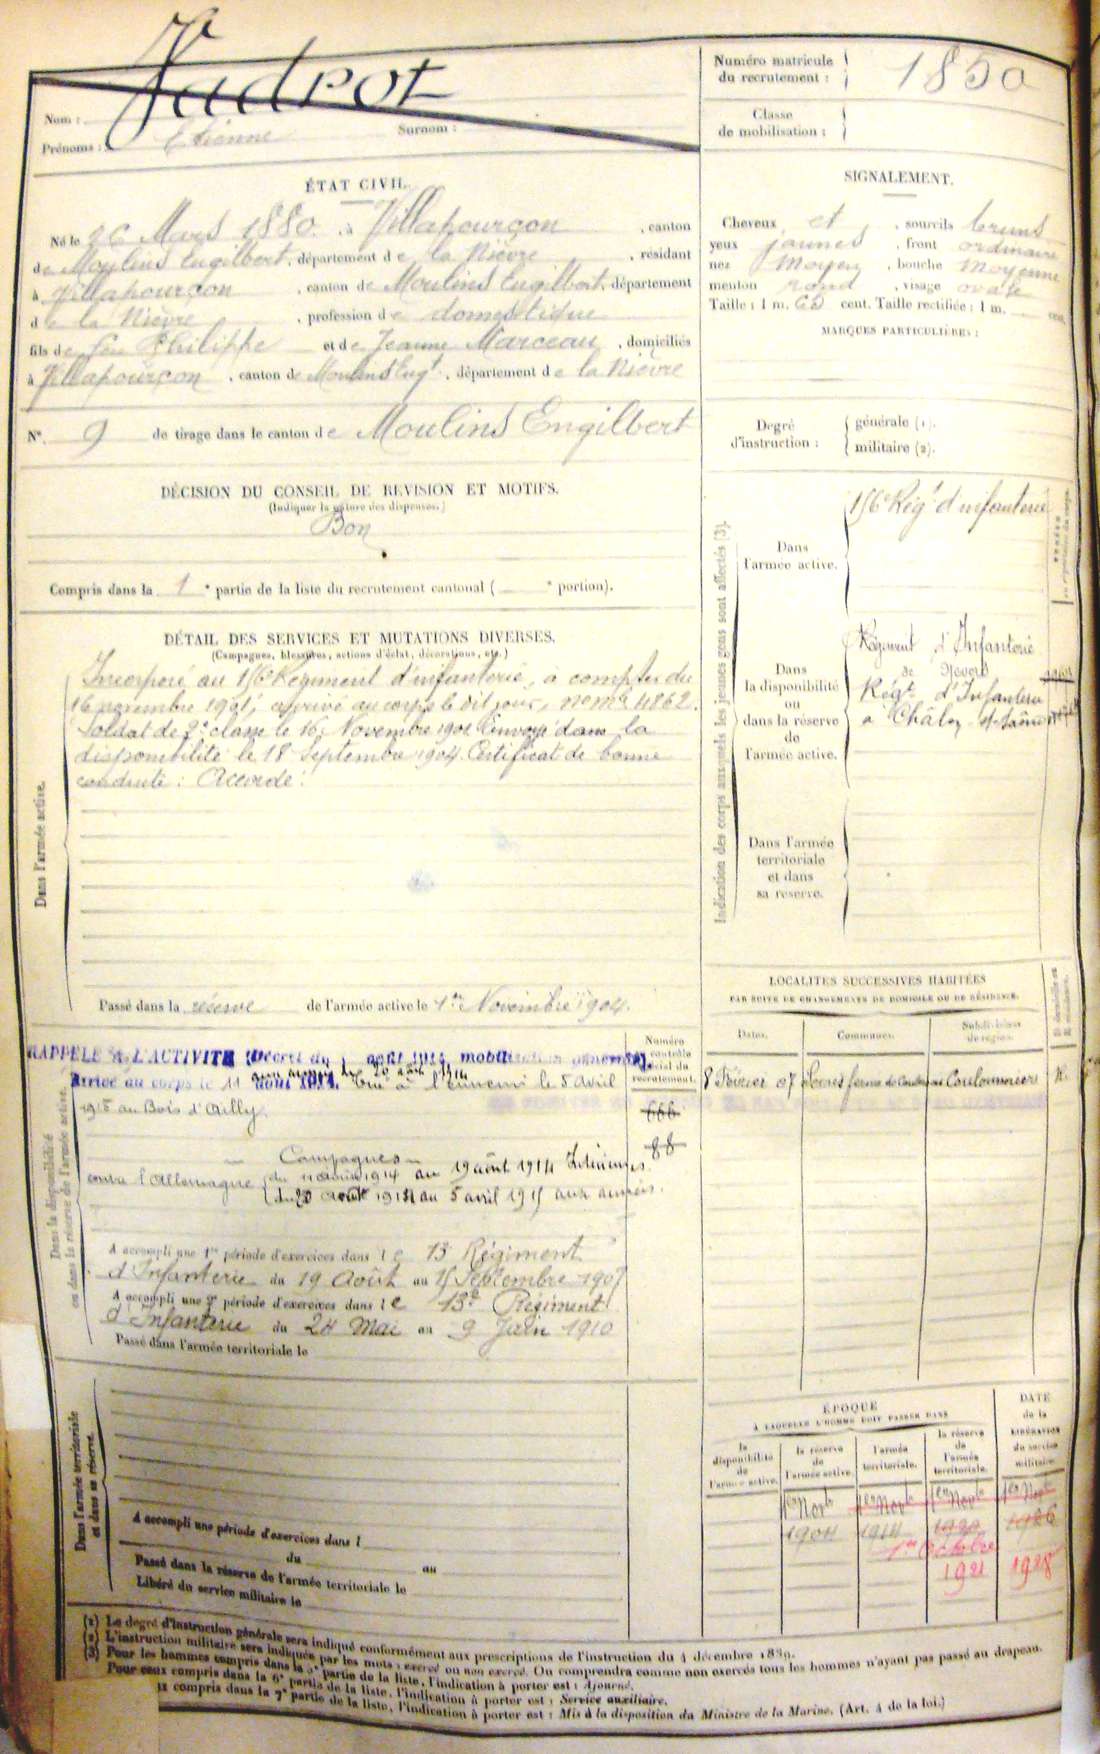 Jadrot
Nom :
Prénoms : Etienne
Surnom :
Numéro matricule
du recrutement : 1850
Classe
de mobilisation :
ÉTAT CIVIL.
Né le 26 Mars 1880 , à Villapourçon , canton
de Moulins Engilbert , département de la Nièvre , résidant
à Villapourçon , canton de Moulins Engilbert , département
de la Nièvre , profession de domestique
fils de feu Philippe et de Jeanne Marceau , domiciliés
à Villapourçon , canton de Moulins Engt , département de la Nièvre
N° 9 de tirage dans le canton de Moulins Engilbert
SIGNALEMENT.
Cheveux et , sourcils bruns
yeux jaunes , front ordinaire
nez moyen , bouche moyenne
menton rond , visage ovale
Taille : 1 m. cent. Taille rectifiée : 1 m. cent.
MARQUES PARTICULIÈRES :
Degré
d'instruction :
générale (1).
militaire (2).
DÉCISION DU CONSEIL DE REVISION ET MOTIFS.
(Indiquer la nature des dispenses.)
Bon
Compris dans la 1e partie de la liste du recrutement cantonal ( e portion).
DÉTAIL DES SERVICES ET MUTATIONS DIVERSES.
(Campagnes, blessures, actions d'éclat, décorations, etc.)
Dans l'armée active.
Incorporé au 156e Régiment d'infanterie, à compter du
16 novembre 1901, arrivé au corps le dit jour, no Mle 4862.
Soldat de 2e classe le 16 Novembre 1901. Envoyé dans la
disponibilité le 18 Septembre 1904. Certificat de bonne
conduite : Accordé.
Passé dans la réserve de l'armée active le 1er Novembre 1904.
Indication des corps auxquels les jeunes gens sont affectés (3).
Dans
l'armée active.
156e Régt d'infanterie
Dans
la disponibilité
ou
dans la réserve
de
l'armée active.
Régiment d'Infanterie
de Nevers
Régt d'Infanterie
à Châlon s/ Saône
Dans l'armée
territoriale
et dans
sa réserve.
LOCALITÉS SUCCESSIVES HABITÉES
PAR SUITE DE CHANGEMENTS DE DOMICILE OU DE RÉSIDENCE.
Dates.
Communes.
Subdivisions
de région.
D domicile ou
R résidence.
8 Février 07
Coulommiers
R.
Dans la disponibilité
ou dans la réserve de l'armée active.
Numéro
du contrôle
spécial du
recrutement.
666
88
RAPPELÉ A L'ACTIVITÉ (Décret du 1 août 1914, mobilisation générale)
aux armées le 20 août 1914
Arrivé au corps le 11 août 1914. Tué à l'ennemi le 5 avril
1915 au Bois d'Ailly.
Campagnes
contre l'Allemagne
du 11 août 1914 au 19 août 1914 Intérieur
du 20 août 1914 au 5 avril 1915 aux armées.
A accompli une 1re période d'exercices dans le 13e Régiment
d'Infanterie du 19 Août au 15 Septembre 1907
A accompli une 2e période d'exercices dans le 13e Régiment
d'Infanterie du 24 Mai au 9 Juin 1910
Passé dans l'armée territoriale le
Dans l'armée territoriale
et dans sa réserve.
A accompli une période d'exercices dans l
du au
Passé dans la réserve de l'armée territoriale le
Libéré du service militaire le
ÉPOQUE
À LAQUELLE L'HOMME DOIT PASSER DANS
DATE
de la
LIBÉRATION
du service
militaire.
la
disponibilité
de
l'armée active.
la réserve
de
l'armée active.
l'armée
territoriale.
la réserve
de
l'armée
territoriale.
1er Novb 1er Novb 1er Novb 1er Novb
1904 1914 1920 1926
1er Octobre
1921 1928
(1) Le degré d'instruction générale sera indiqué conformément aux prescriptions de l'instruction du 4 décembre 1889.
(2) L'instruction militaire sera indiquée par les mots : exercé ou non exercé. On comprendra comme non exercés tous les hommes n'ayant pas passé au drapeau.
(3) Pour les hommes compris dans la 5e partie de la liste, l'indication à porter est : Ajourné.
Pour ceux compris dans la 6e partie de la liste, l'indication à porter est : Service auxiliaire.
x compris dans la 7e partie de la liste, l'indication à porter est : Mis à la disposition du Ministre de la Marine. (Art. 4 de la loi.)